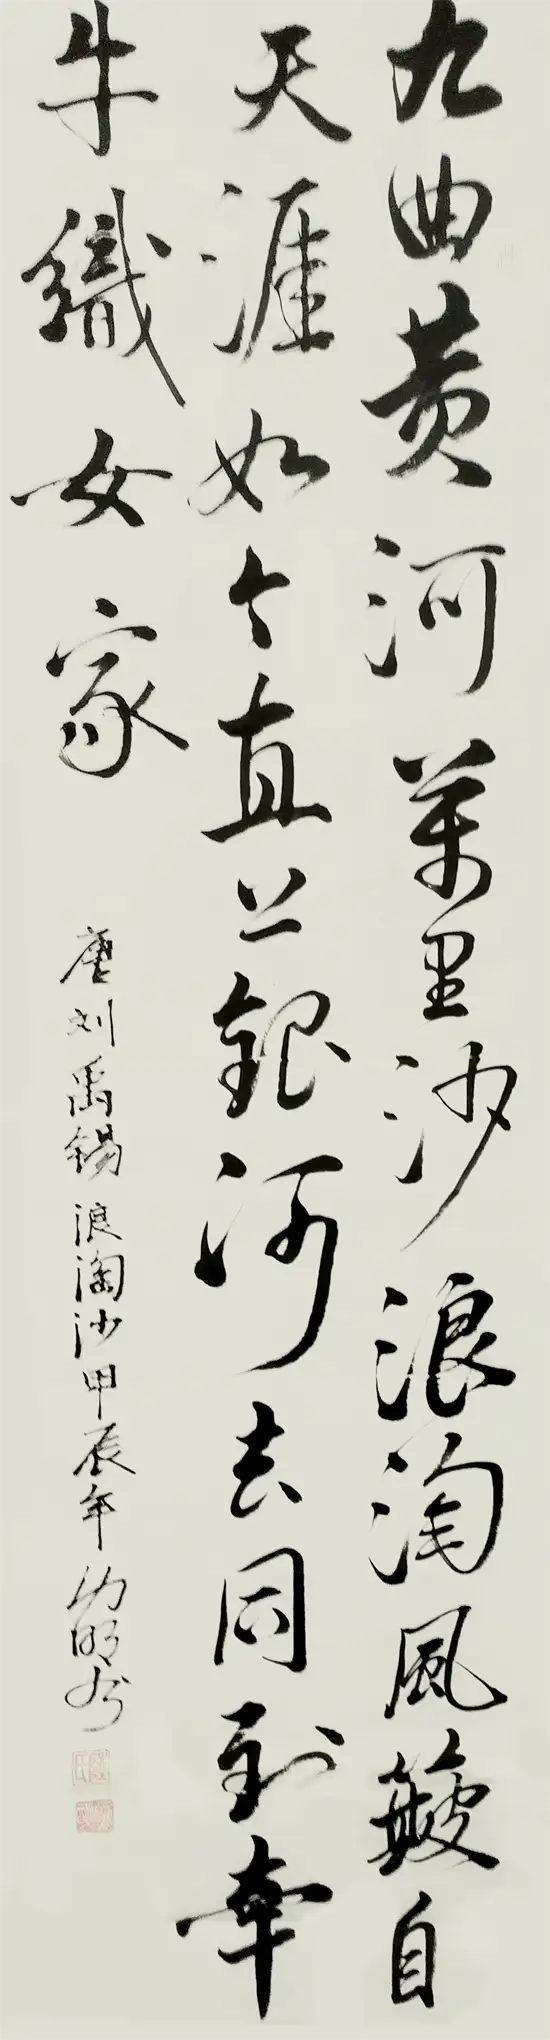 九曲黄河万里沙浪淘風簸自
天涯如今直上銀河去同到牽
牛織女家
唐刘禹锡浪淘沙甲辰年